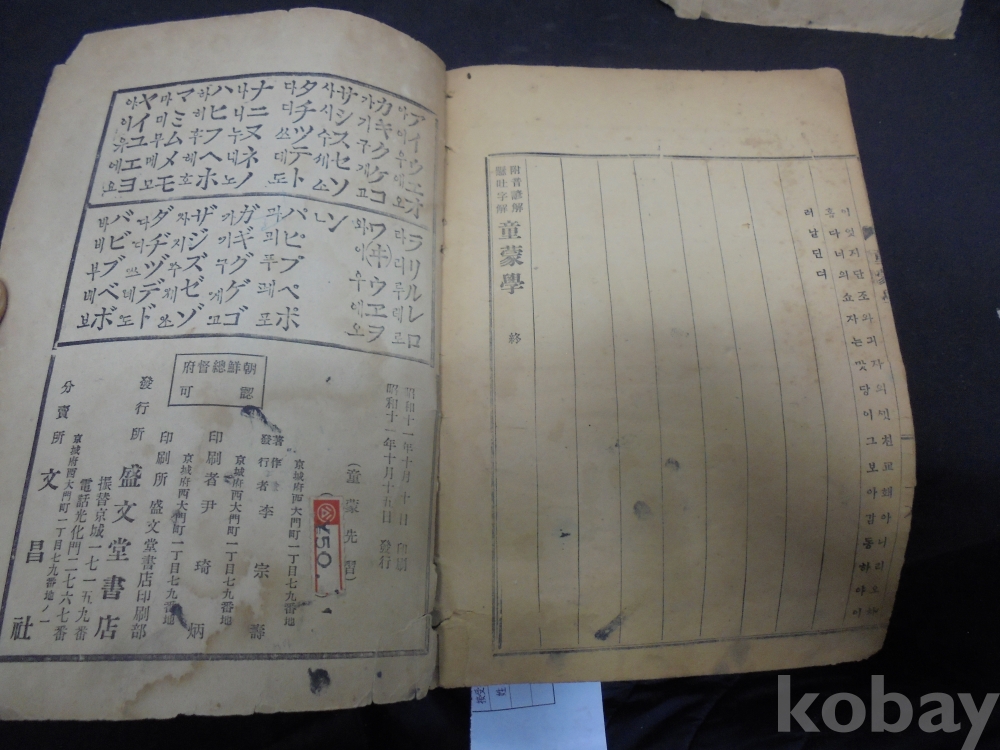 이잇지단조와괴자의셧친교왜아니디오
흠다녀의쇼자는맛당이그보아감동하야이
러날딘뎌
附音諺解
懸吐字解
童蒙學 終
アイウエオ
아이우에오
カキクケコ
가기구게고
サシスセソ
사시수세소
タチツテト
다디쓰데도
ナニヌネノ
나니누네노
ハヒフヘホ
하히후헤호
マミムメモ
마미무메모
ヤイユエヨ
야이유에요
ラリルレロ
라리루레로
ワ(ヰ)ウヱヲ
와이우에오
ン
パピプペポ
파피푸페포
ガギグゲゴ
가기구게고
ザジズゼゾ
자지주제조
ダヂヅデド
다디쓰데도
バビブベボ
바비부베보
朝鮮總督府
認可
昭和十一年十月十日 印刷
昭和十一年十月十五日 發行
(童蒙先習)
¥50
京城府西大門町一丁目七九番地
著作
發行者 李宗壽
京城府西大門町一丁目七九番地
印刷者 尹琦炳
京城府西大門町一丁目七九番地
印刷所 盛文堂書店印刷部
發行所 盛文堂書店
振替京城一七一五九番
電話光化門二七六七番
京城府西大門町一丁目七九番地ノ一
分賣所 文昌社
kobay